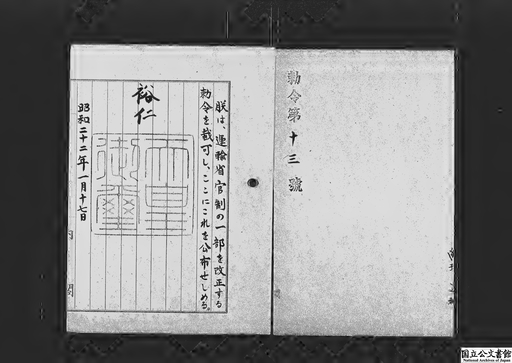 勅令第十三號
朕は、運輸省官制の一部を改正する
勅令を裁可し、ここにこれを公布せしめる。
裕仁
天皇御璽
昭和二十二年一月十七日
内閣
国立公文書館
National Archives of Japan